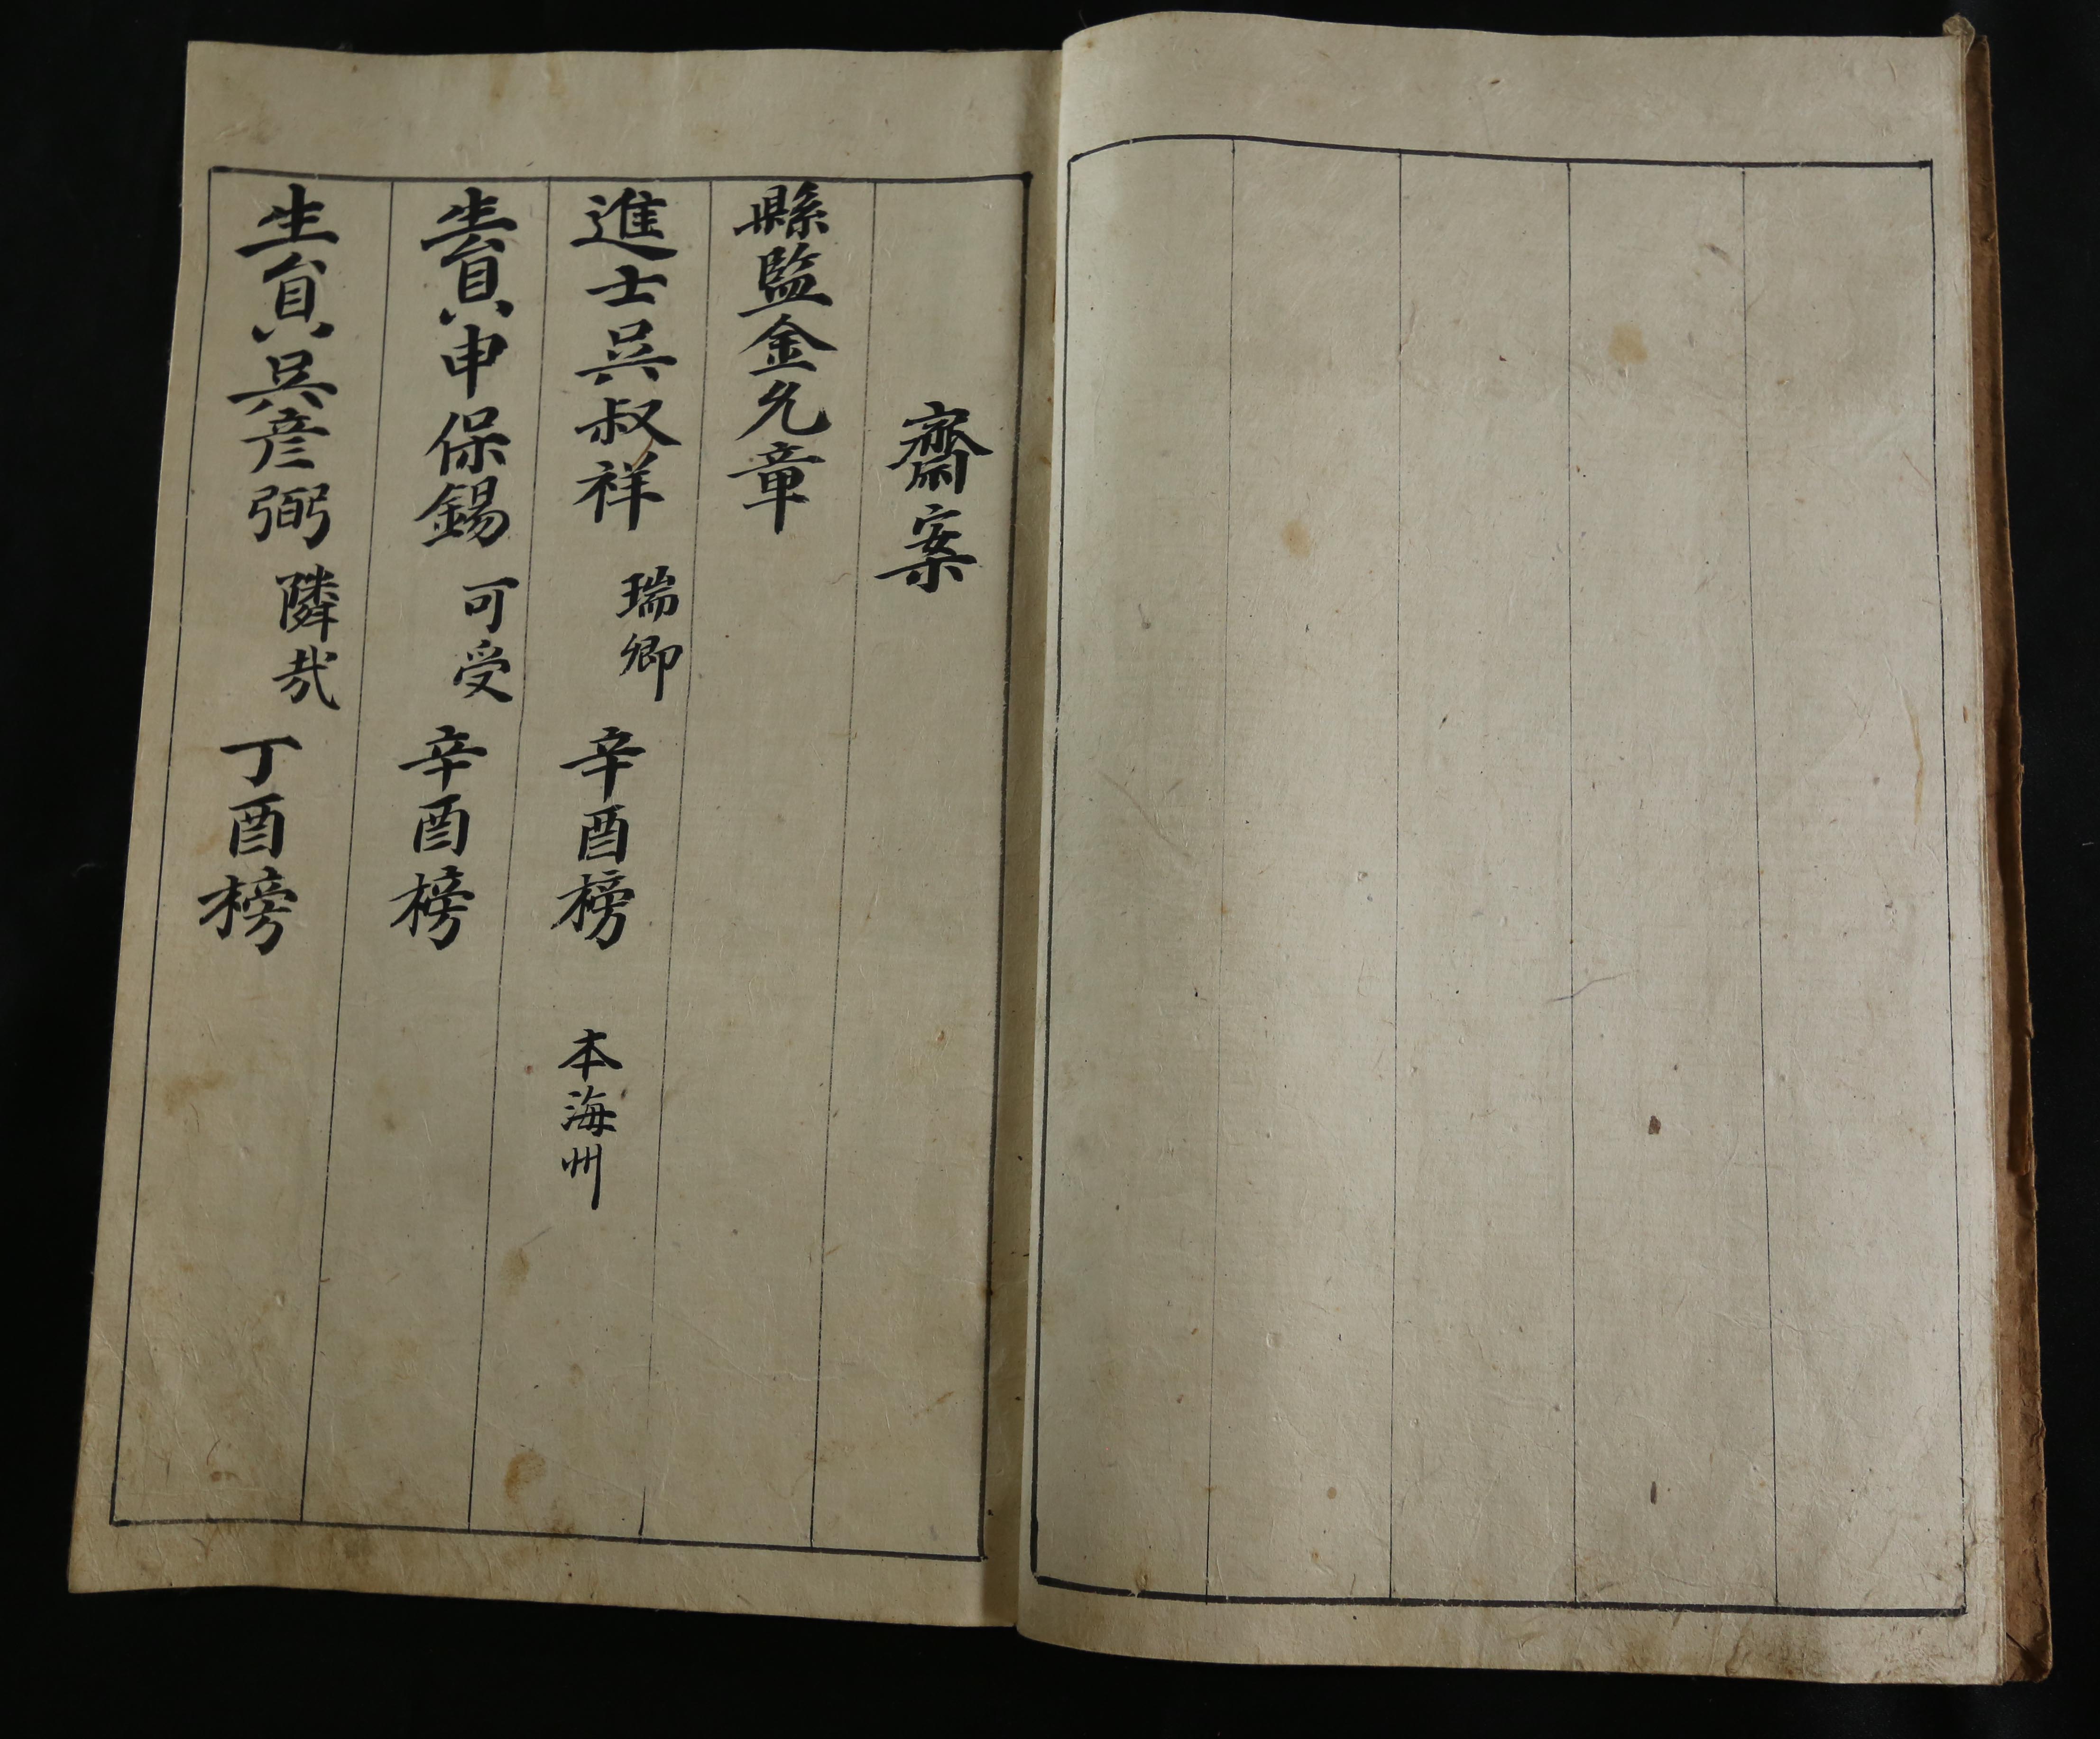 齋案
縣監金允章
進士吳叔祥 瑞卿 辛酉榜 本海州
生員申保錫 可受 辛酉榜
生員吳彦弼 隣哉 丁酉榜